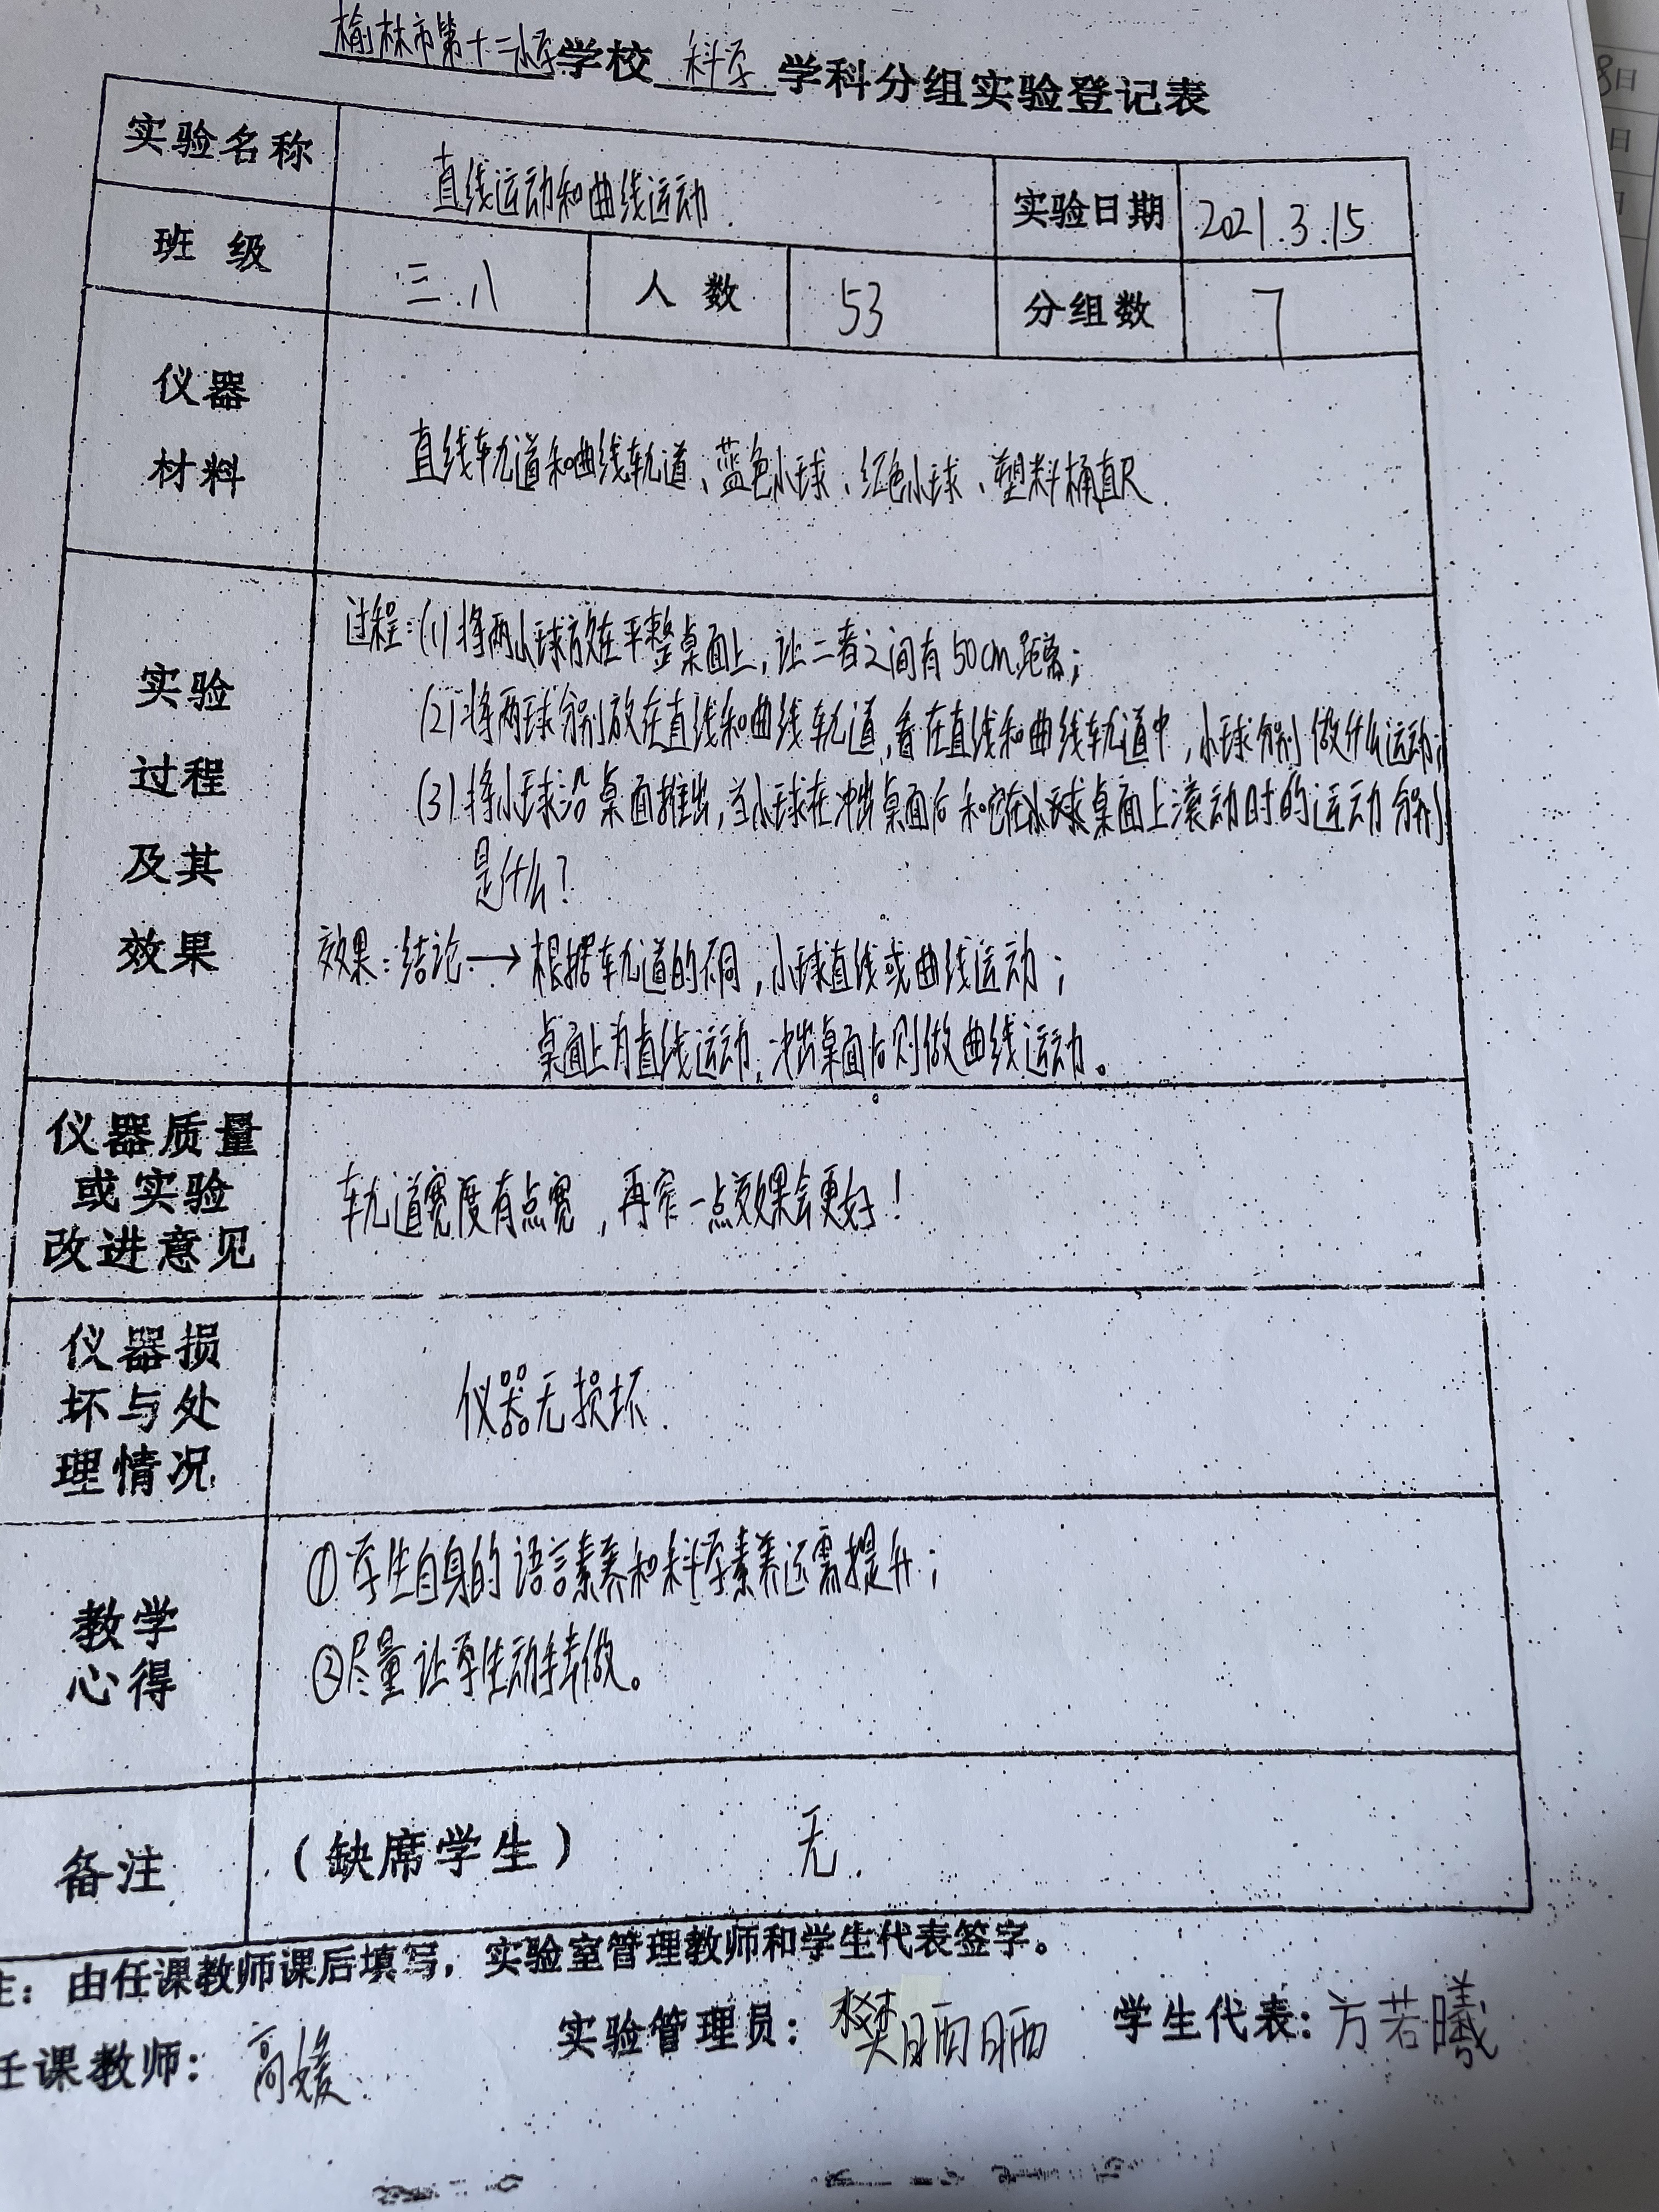 榆林市第十二小学学校 科学 学科分组实验登记表
实验名称 直线运动和曲线运动. 实验日期 2021.3.15
班级 三.八 人数 53 分组数 7
仪器
材料
直线轨道和曲线轨道、蓝色小球、红色小球、塑料桶直尺
实验
过程
及其
效果
过程:(1)将两小球放在平整桌面上,让二者之间有50cm距离;
(2)将两球分别放在直线和曲线轨道,看在直线和曲线轨道中,小球分别做什么运动;
(3)将小球沿桌面推出,当小球在冲出桌面后和它在小球桌面上滚动时的运动分别
是什么?
效果:结论→根据轨道的不同,小球直线或曲线运动;
桌面上为直线运动,冲出桌面后则做曲线运动。
仪器质量
或实验
改进意见
轨道宽度有点宽,再窄一点效果会更好!
仪器损
坏与处
理情况
仪器无损坏.
教学
心得
①学生自身的语言素养和科学素养还需提升;
②尽量让学生动手去做。
备注 (缺席学生) 无.
注:由任课教师课后填写,实验室管理教师和学生代表签字。
任课教师:高媛 实验管理员:樊晒晒 学生代表:方若曦
8日
日